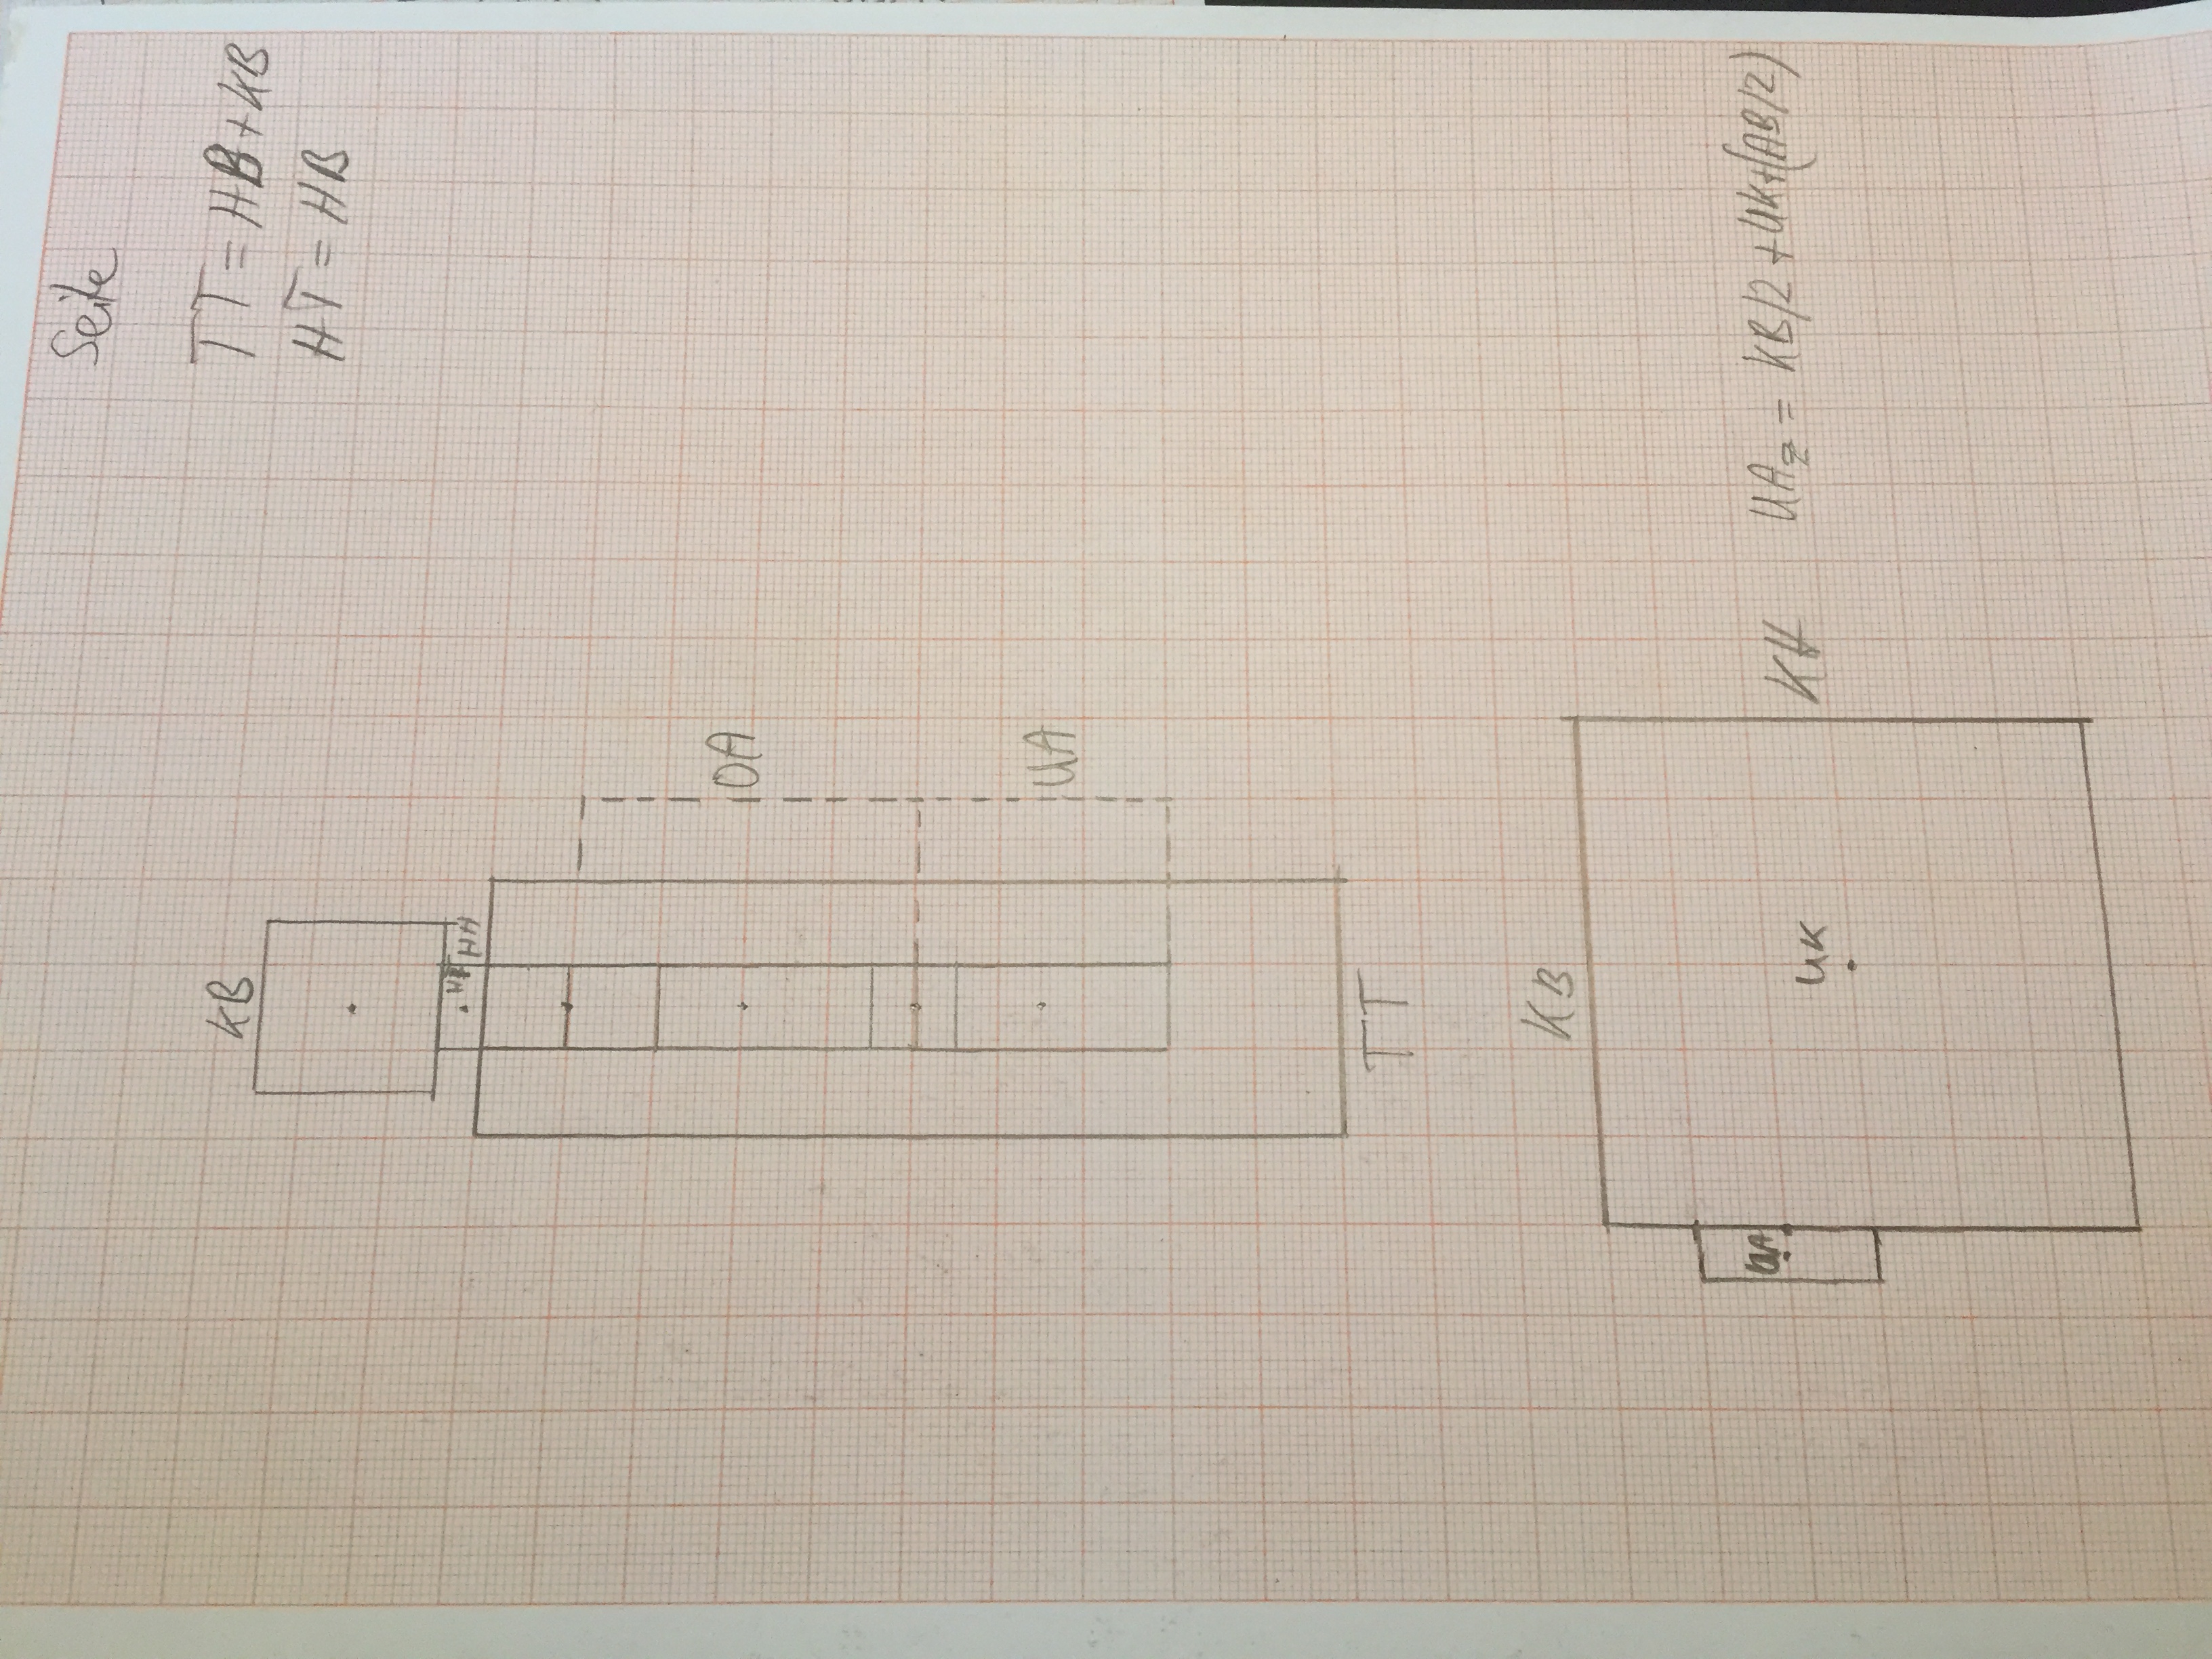 Seite
TT = HB + KB
HT = HB
KB
HH
OA
UA
TT
KB
UK
KH
UAz = KB/2 + UK + (AB/2)